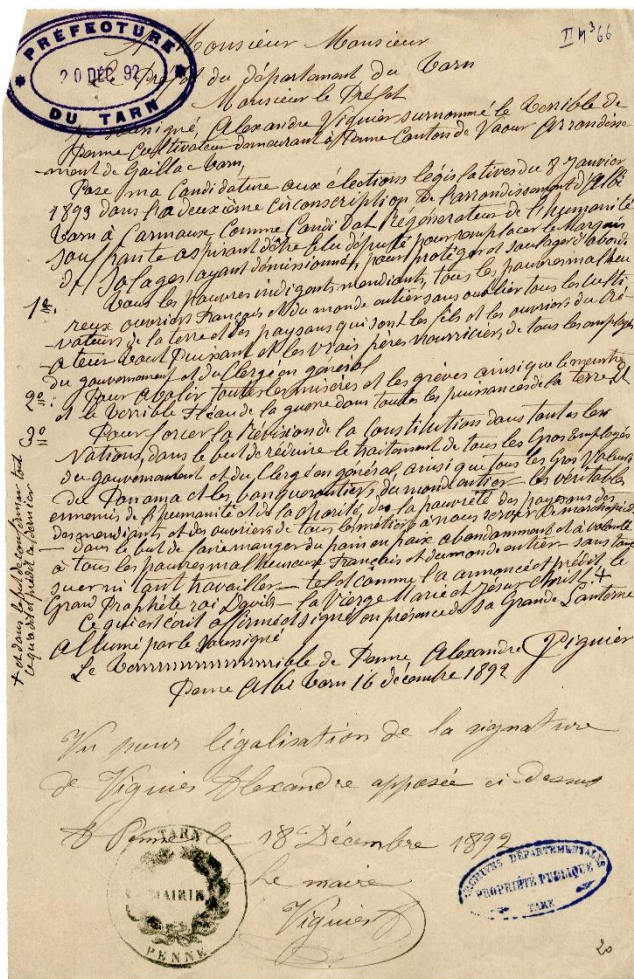 PRÉFECTURE
20 DÉC 92
DU TARN
II M³ 66
A Monsieur Monsieur
Le Préfet du département du Tarn
Monsieur le Préfet
Je soussigné, Alexandre Viguier surnommé le Terrible de
Penne cultivateur demeurant à Penne Canton de Vaour Arrondisse
-ment de Gaillac Tarn,
Pose ma Candidature aux élections législatives du 8 Janvier
1893 dans la deuxième circonscription de l'arrondissement d'Albi
Tarn à Carmaux, comme Candidat Régénérateur de l'humanité
souffrante aspirant d'être élu député pour remplacer le Marquis
de Solages ayant démissionné, pour protéger et soulager d'abord
1º: Tous les pauvres indigents mendiants, tous les pauvres malheu
reux ouvriers Français et du monde entier sans oublier tous les culti
-vateurs de la terre et des paysans qui sont les fils et les ouvriers du Cré
-ateur tout Puissant et les vrais pères nourriciers de tous les employés
du gouvernement et du Clergé en général
2º: Pour abolir toutes les misères et les grèves ainsi que le meurtre
et le terrible Fléau de la guerre dans toutes les puissances de la terre
3º Pour forcer la révision de la Constitution dans toutes les
Nations, dans le but de réduire le traitement de tous les Gros Employés
du gouvernement et du Clergé en général, ainsi que tous les Gros Voleurs
du Panama et les banqueroutiers du monde entier - les véritables
ennemis de l'humanité et de la pauvreté des paysans des
des mendiants et des ouvriers de tous les métiers à nous servir de marchepied
- dans le but de faire manger du pain en paix abondamment et à volonté
à tous les pauvres malheureux Français et du monde entier - sans tant
suer ni tant travailler - tel et comme l'a annoncé et prédit, le
Grand Prophète roi David - la Vierge Marie et Jésus Christ. +
+ et dans le but de confirmer tout
ce qu'a dit et prédit ce dernier
Ce qui est écrit affirmé et signé en présence de sa Grande Lanterne
Allumé par le soussigné
Le Terrrrrrrrrrrrrrible de Penne Alexandre Viguier
Penne Albi Tarn 16 décembre 1892
Vu pour légalisation de la signature
de Viguier Alexandre apposée ci-dessus
A Penne le 18 Décembre 1892
Le maire
Viguier
TARN
MAIRIE
PENNE
ARCHIVES DÉPARTEMENTALES
PROPRIÉTÉ PUBLIQUE
TARN
20